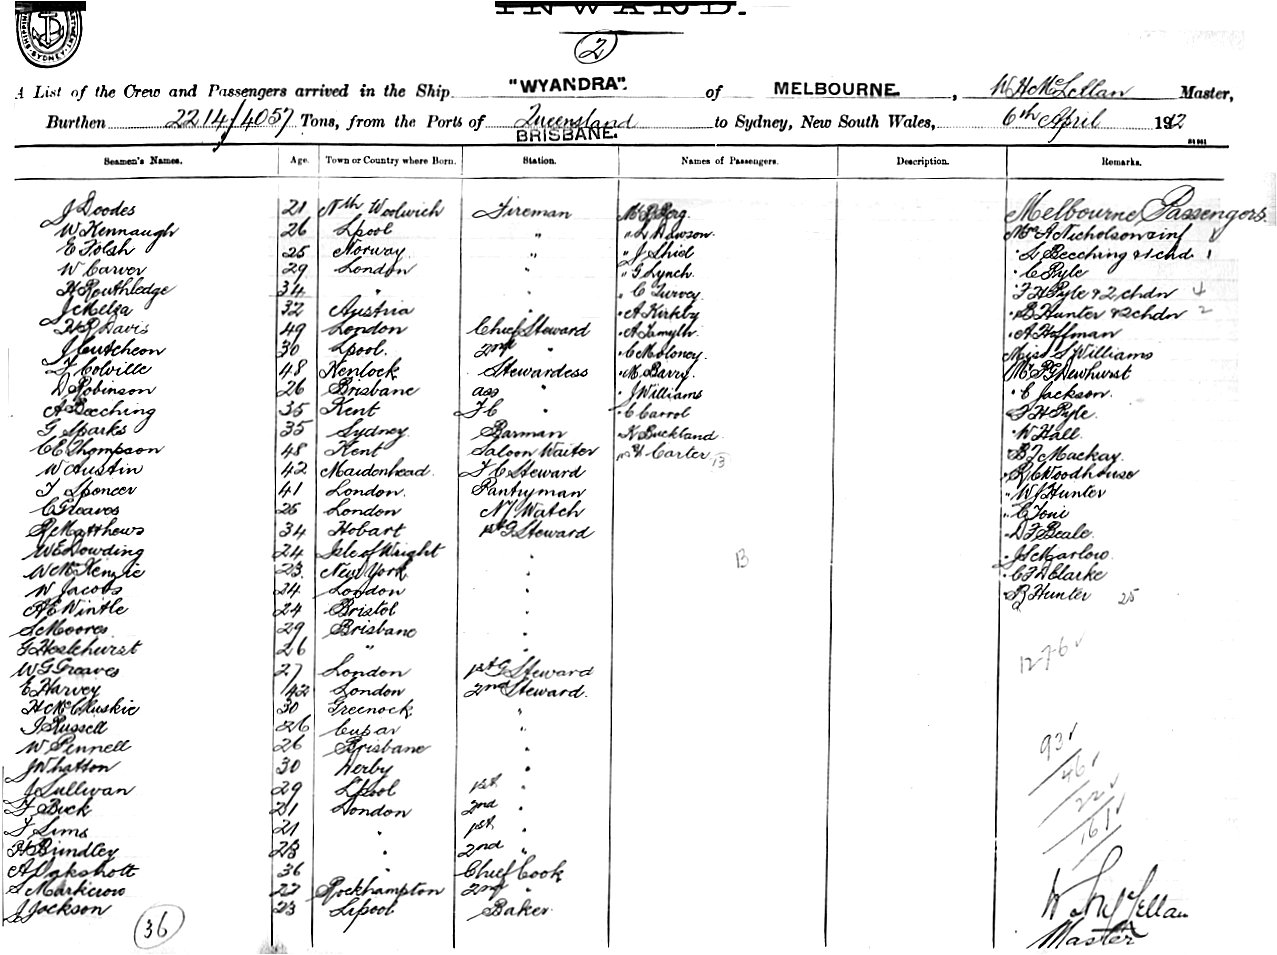 INWARD.
2
A List of the Crew and Passengers arrived in the Ship "WYANDRA". of MELBOURNE. , W H McLellan Master,
Burthen 2214/4057 Tons, from the Ports of Queensland BRISBANE. to Sydney, New South Wales, 6th April 1912
Seamen's Names. Age. Town or Country where Born. Station. Names of Passengers. Description. Remarks.
J Doodes 21 Nth Woolwich Fireman Mr Berg. Melbourne Passengers.
W Kennaugh 26 Lpool " " L Dawson. Mrs A Nicholson & inf
E Folsh 25 Norway " " J Shid " L Beeching & 1 chd 1
W Carver 29 London " G Lynch " C Pyle
H Routhledge 34 " " C Turvey. " F H Pyle & 2 chdn 4
J Melza 32 Austria " A Kirkby " B Hunter & 2 chdn 2
H R Davis 49 London Chief Steward " A Smyth " A Hoffman
J Cutcheon 30 Lpool. 2nd " " C Moloney. Miss S Williams
F Colville 48 Kenlock Stewardess " M Barry. Mr P G Dewhurst
D Robinson 26 Brisbane ass " " J Williams " C Jackson.
A Beeching 35 Kent F C " " C Carrol " F H Pyle.
G Sparks 35 Sydney Barman " K Buckland " W Hall.
C E Thompson 48 Kent Saloon Waiter " H Carter 13 " B J Mackay.
W Austin 42 Maidenhead. F C Steward " R C Woodhouse
T Spencer 41 London. Pantryman " W J Hunter
C Greaves 25 London N/Watch " C Toni
R Matthews 34 Hobart 1st G Steward " D F Beale.
W E Dowding 24 Isle of Wright " 13 " J S Marlow.
W McKenzie 23. New York " " C F D Clarke
W Jacobs 24 London " " B Hunter 25
A E Wintle 24 Bristol "
S Moores 29 Brisbane "
G Heslehurst 26 " "
W G Greaves 27 London 1st G Steward 1276
E Harvey 42 London 2nd Steward.
H McCluskie 30 Greenock "
J Russell 26 Cupar "
W Pennell 26 Brisbane " 93
J Whatton 30 Derby "
J Sullivan 29 Lpool 1st " 46
F Buck 21 London 2nd " 22
F Sims 21 " 1st " 161
H Brindley 23 " 2nd "
A Oakshott 36 Chief Cook
S Markcrow 27 Rockhampton 2nd "
J Jackson 23 Lipool Baker
36
W H McLellan
Master